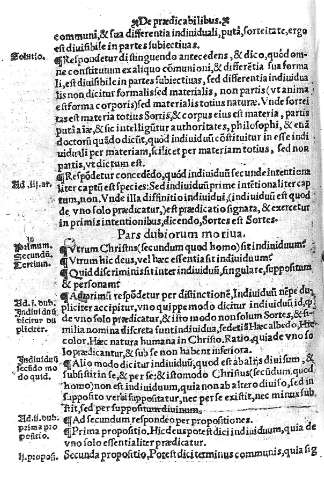 De prædicabilibus.
communi, & sua differentia individuali, putà, sorteitate, ergo
est divisibile in partes subiectivas.
Solutio.
¶Respondetur distinguendo antecedens, & dico, quòd om-
ne constitutum ex aliquo cõmuni, & differẽtia sua forma
li, est divisibile in partes subiectivas, sed differentia individua
lis non dicitur formalis sed materialis, non partis (vt anima
est forma corporis) sed materialis totius naturæ. Vnde sortei
tas est materia totius Sortis, & corpus eius est materia, partis
putà aīæ, & sic intelligũtur authoritates, philosophi, & etiã
doctorũ quãdo dicũt, quòd individuũ cõstituitur in esse indi
viduali per materiam, scilicet per materiam totius, sed non
partis, vt dictum est.
Ad .iii. ar.
¶Respõdetur concedẽdo, quòd individuũ secundæ intentiona
liter captũ est species: Sed individuũ primę intẽtionaliter cap
tum, non. Vnde illa diffinitio individui, (individuũ est quod
de vno solo prædicatur,) est prædicatio signata, & exercetur
in primis intentionibus, dicendo, Sortes est Sortes.
Pars dubiorum motiua.
Primum.
¶Vtrum Christus (secundum quod homo) sit individuum?
Secundũ.
¶Vtrum hic deus, vel hæc essentia sit individuum?
Tertium.
¶Quid discriminis sit inter individuũ, singulare, suppositum
& personam?
Ad .i. dub.
¶Ad primũ respõdetur per distinctionẽ, Individuũ nẽpe du
Individuũ
pliciter accipitur, vno quippe modo dicitur individuũ id, qđ
dicitur du
de vno solo prædicatur, & isto modo nonsolum Sortes, & si-
pliciter.
milia nomina discreta sunt individua, sed etiã Hæc albedo, Hic
color, Hæc natura humana in Christo. Ratio, quia de vno so
lo prædicantur, & sub se non habent inferiora.
Individuũ
¶Alio modo dicitur individuũ, quod est ab alijs divisum, &
secũdo mo
subsistit in se, & per se; & isto modo Christus (secũdum, quod
do quid.
homo) non est individuum, quia non ab altero diviso, sed in
supposito verbi suppositatur, nec per se existit, nec minus sub
stit, sed per suppositum divinum.
Ad .ii. dub.
¶Ad secundum respondeo per propositiones.
prima pro
¶Prima propositio, Hic deus potest dici individuum, quia de
positio.
vno solo essentialiter prædicatur.
ii. proposi.
Secunda propositio, Potest dici terminus communis, quia sig